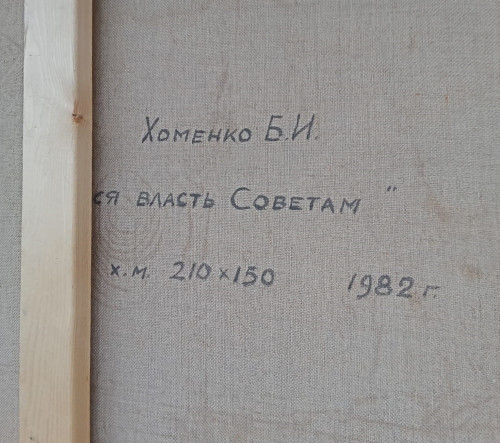 Хоменко Б.И.
ся власть Советам "
х.м. 210×150 1982 г.